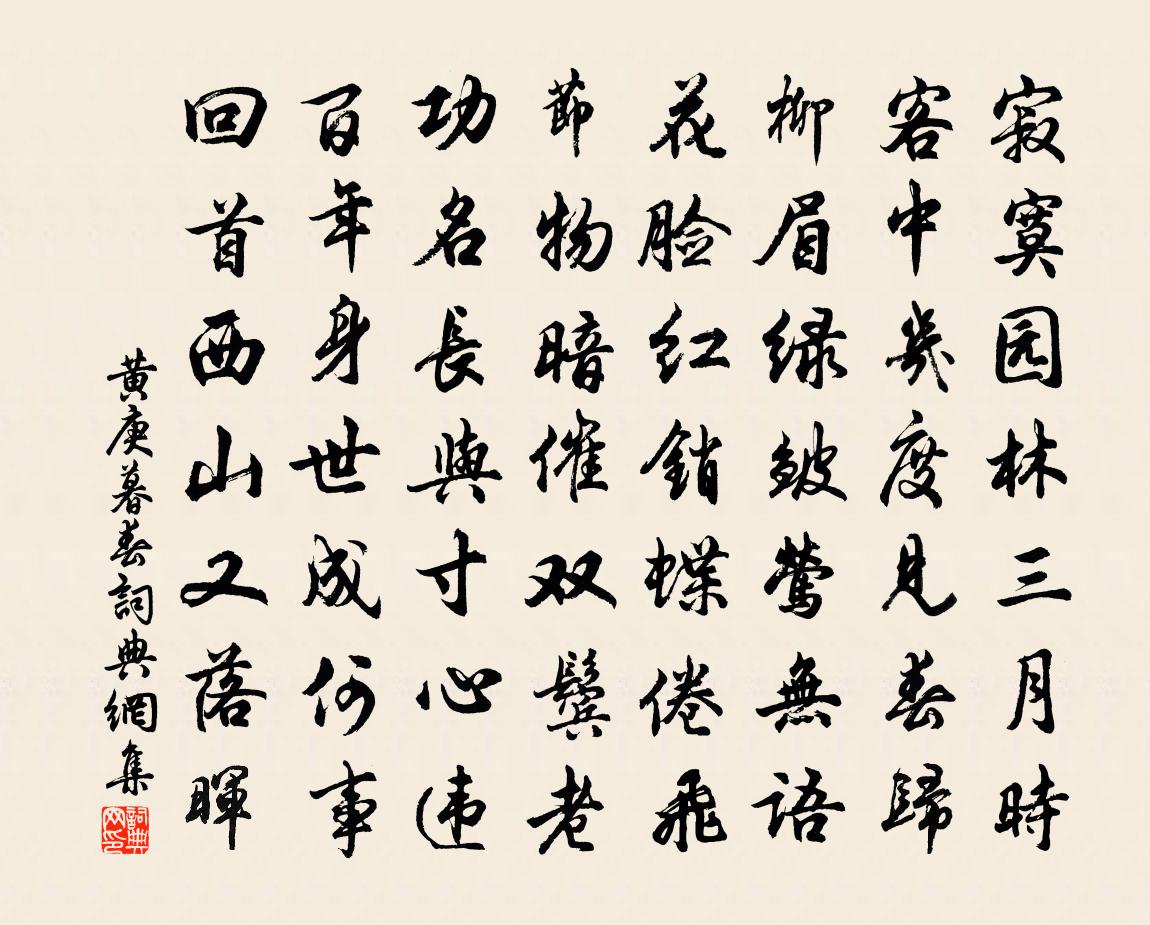 寂寞园林三月時
客中幾度見春歸
柳眉绿皱鶯無語
花脸红銷蝶倦飛
節物暗催双鬢老
功名長與寸心违
百年身世成何事
回首西山又落暉
黄庚暮春詞典網集
詞典网印